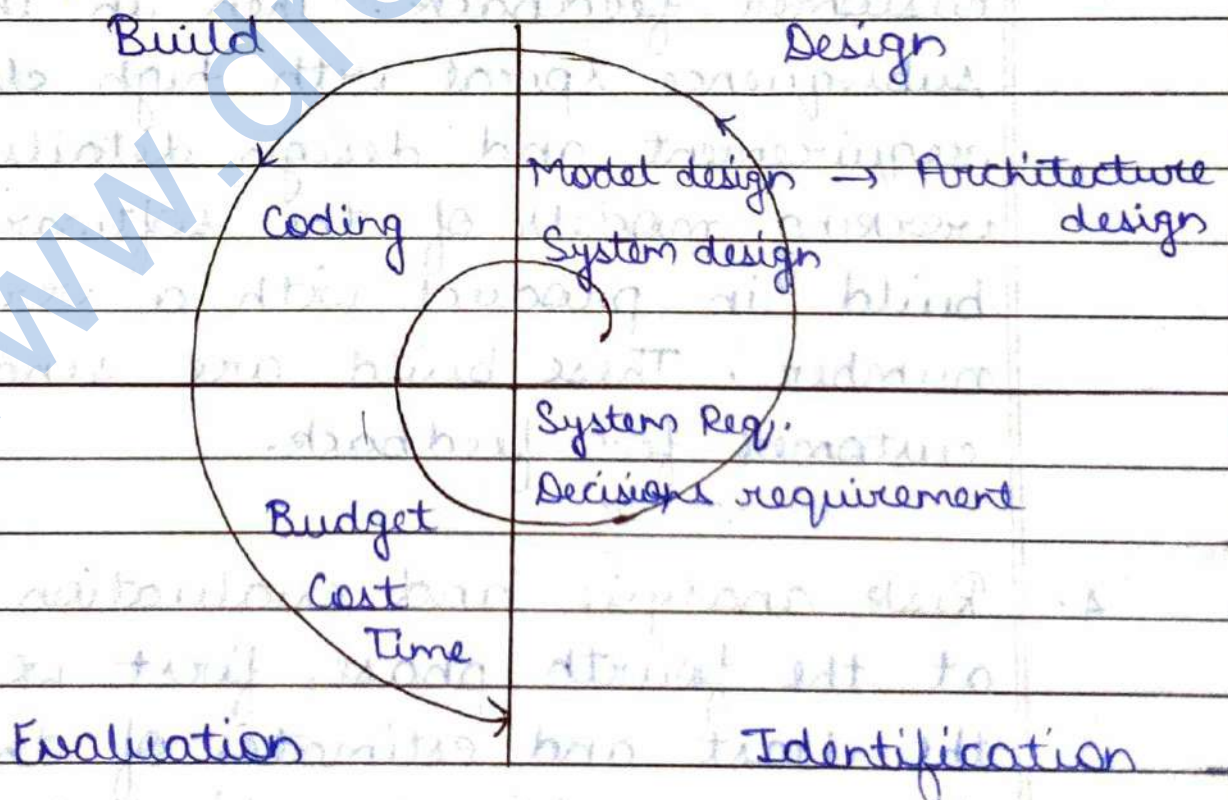 Build
Design
Model design → Architecture
design
Coding
System design
System Req.
Decisions requirement
Budget
Cost
Time
Evaluation
Identification